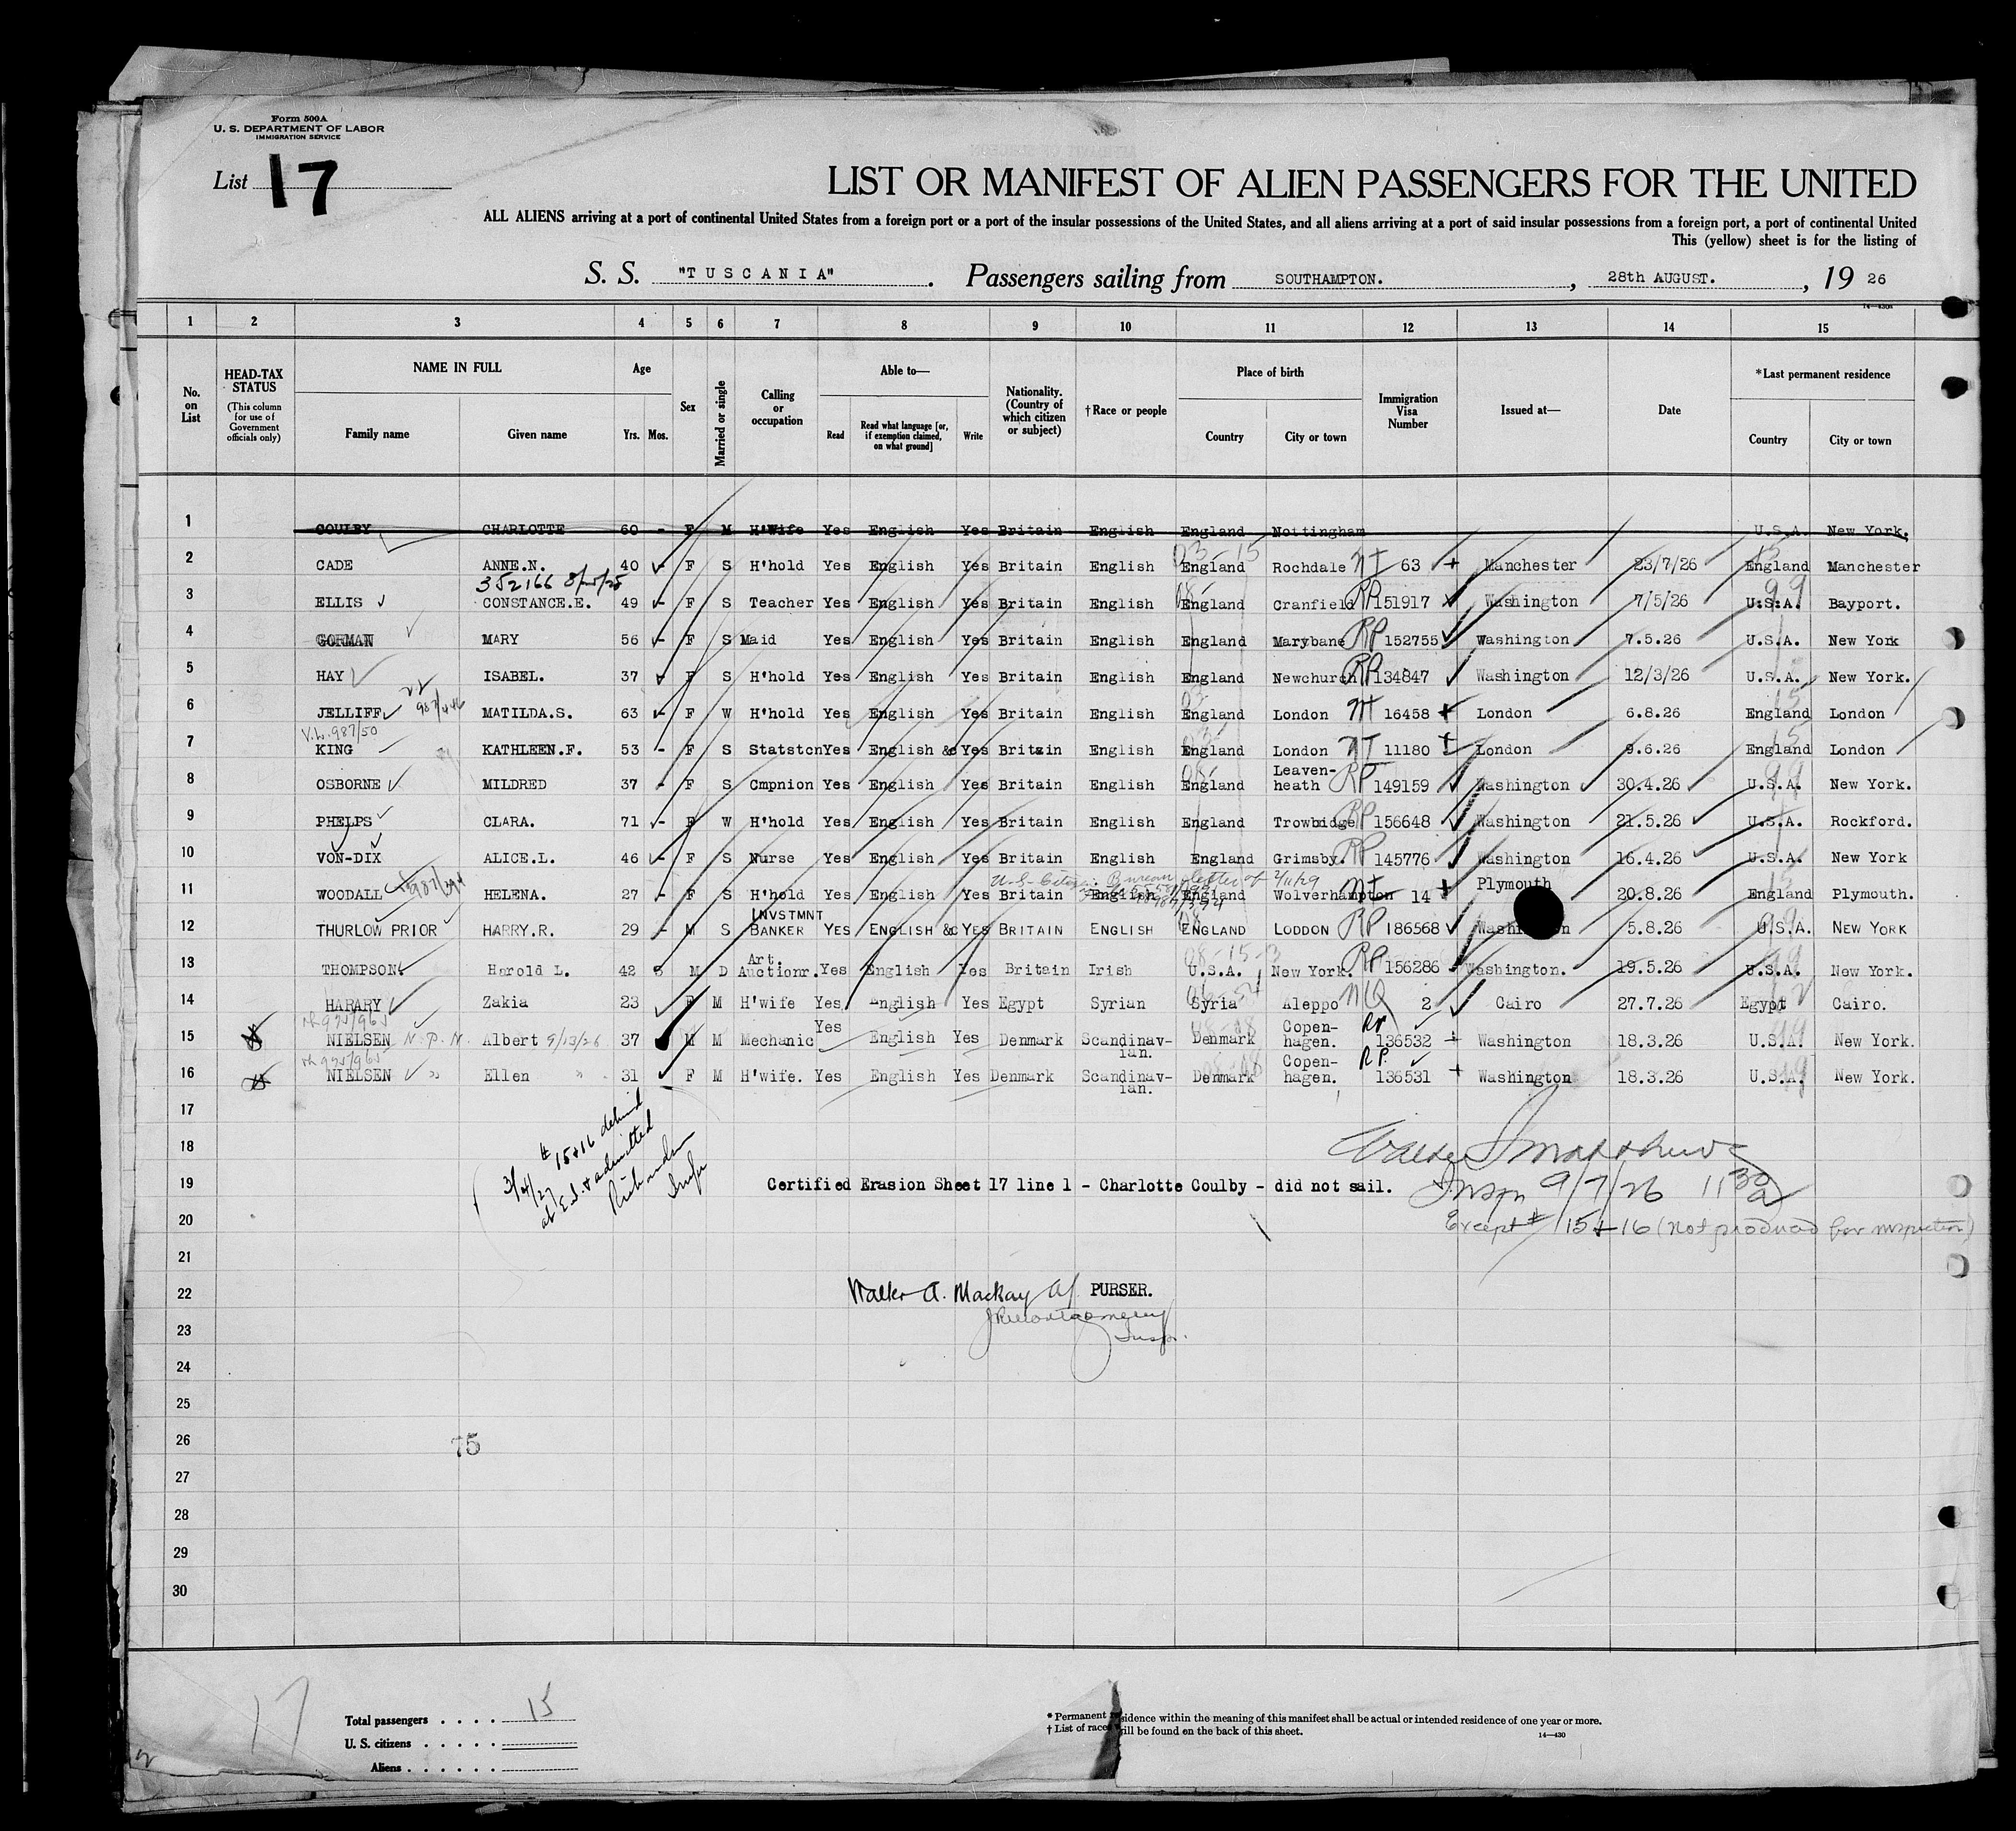 Form 500A
U. S. DEPARTMENT OF LABOR
IMMIGRATION SERVICE
List 17
LIST OR MANIFEST OF ALIEN PASSENGERS FOR THE UNITED
ALL ALIENS arriving at a port of continental United States from a foreign port or a port of the insular possessions of the United States, and all aliens arriving at a port of said insular possessions from a foreign port, a port of continental United
This (yellow) sheet is for the listing of
S. S. "TUSCANIA". Passengers sailing from SOUTHAMPTON., 28th AUGUST., 19 26
14—430A
1 2 3 4 5 6 7 8 9 10 11 12 13 14 15
No. on List
HEAD-TAX STATUS (This column for use of Government officials only)
NAME IN FULL Family name Given name
Age Yrs. Mos.
Sex
Married or single
Calling or occupation
Able to— Read Read what language [or, if exemption claimed, on what ground] Write
Nationality. (Country of which citizen or subject)
†Race or people
Place of birth Country City or town
Immigration Visa Number
Issued at—
Date
*Last permanent residence Country City or town
1 COULBY CHARLOTTE 60 - F M H'Wife Yes English Yes Britain English England Nottingham U.S.A. New York.
03-15
2 CADE ANNE.N. 40 - F S H'hold Yes English Yes Britain English England Rochdale NI 63 Manchester 23/7/26 England Manchester
352166
3 ELLIS CONSTANCE.E. 49 - F S Teacher Yes English Yes Britain English England Cranfield RP 151917 Washington 7/5/26 U.S.A. Bayport.
4 GORMAN MARY 56 - F S Maid Yes English Yes Britain English England Marybane RP 152755 Washington 7.5.26 U.S.A. New York
5 HAY ISABEL. 37 - F S H'hold Yes English Yes Britain English England Newchurch RP 134847 Washington 12/3/26 U.S.A. New York.
6 JELLIFF MATILDA.S. 63 - F W H'hold Yes English Yes Britain English England London 16458 London 6.8.26 England London
V.L. 987/50
7 KING KATHLEEN.F. 53 - F S Statstcn Yes English &c Yes Britain English England London 11180 London 9.6.26 England London
8 OSBORNE MILDRED 37 - F S Cmpnion Yes English Yes Britain English England Leaven-heath RP 149159 Washington 30.4.26 U.S.A. New York.
9 PHELPS CLARA. 71 - F W H'hold Yes English Yes Britain English England Trowbidge RP 156648 Washington 21.5.26 U.S.A. Rockford.
10 VON-DIX ALICE.L. 46 - F S Nurse Yes English Yes Britain English England Grimsby. RP 145776 Washington 16.4.26 U.S.A. New York
Bureau letter of
11 WOODALL HELENA. 27 - F S H'hold Yes English Yes Britain English England Wolverhampton 14 Plymouth 20.8.26 England Plymouth.
12 THURLOW PRIOR HARRY.R. 29 - M S INVSTMNT BANKER YES ENGLISH &C YES BRITAIN ENGLISH ENGLAND LODDON RP 186568 5.8.26 U.S.A. NEW YORK
08-15-3
13 THOMPSON Harold L. 42 M D Art. Auctionr. Yes English Yes Britain Irish U.S.A. New York. RP 156286 Washington. 19.5.26 U.S.A. New York.
14 HARARY Zakia 23 F M H'wife Yes English Yes Egypt Syrian Syria Aleppo NQ 2 Cairo 27.7.26 Egypt Cairo.
15 NIELSEN Albert 9/13/26 37 M M Mechanic Yes English Yes Denmark Scandinav-ian. Denmark Copen-hagen. RP 136532 Washington 18.3.26 U.S.A. New York.
16 NIELSEN " Ellen " 31 F M H'wife. Yes English Yes Denmark Scandinav-ian. Denmark Copen-hagen. R.P. 136531 Washington 18.3.26 U.S.A. New York.
17
18
3/4/27 # 15+16 at E.I. & admitted
19 Certified Erasion Sheet 17 line 1 - Charlotte Coulby - did not sail.
Inspr 9/7/26 11 30 a
20 Except # 15+16 (not produced for inspection)
21
22 Walter A. Mackay PURSER.
J Montgomery
Insp.
23
24
25
26 75
27
28
29
30
17
Total passengers . . . . 15
U. S. citizens . . . . .
Aliens . . . . . .
* Permanent residence within the meaning of this manifest shall be actual or intended residence of one year or more.
† List of races will be found on the back of this sheet.
14—430